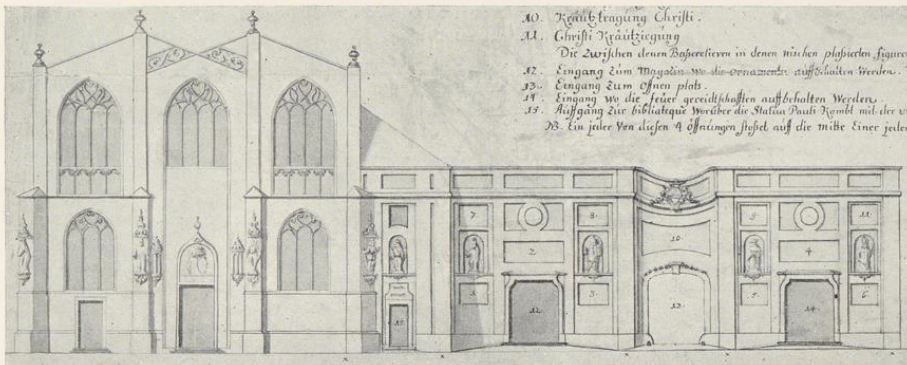 10. Kräutztragung Christi.
11. Christi Kräutziegung
Die Zwischen denen Basrerelieven in denen nischen plasierten figuren
12. Eingang Zum Magazin wo die ornamenta auffbehalten Werden.
13. Eingang Zum Offnen plats.
14. Eingang wo die feuer gereidtschafften auffbehalten Werden.
15. Auffgang Zur bibliateque Worüber die Statua Pauli Kombt mit der
NB. Ein jeder Von diesen 4 öffnungen stoßet auff die mitte Einer jeden
7. 8. 9. 11.
2. 10. 4.
1. 3. 5. 6.
15. 12. 13. 14.